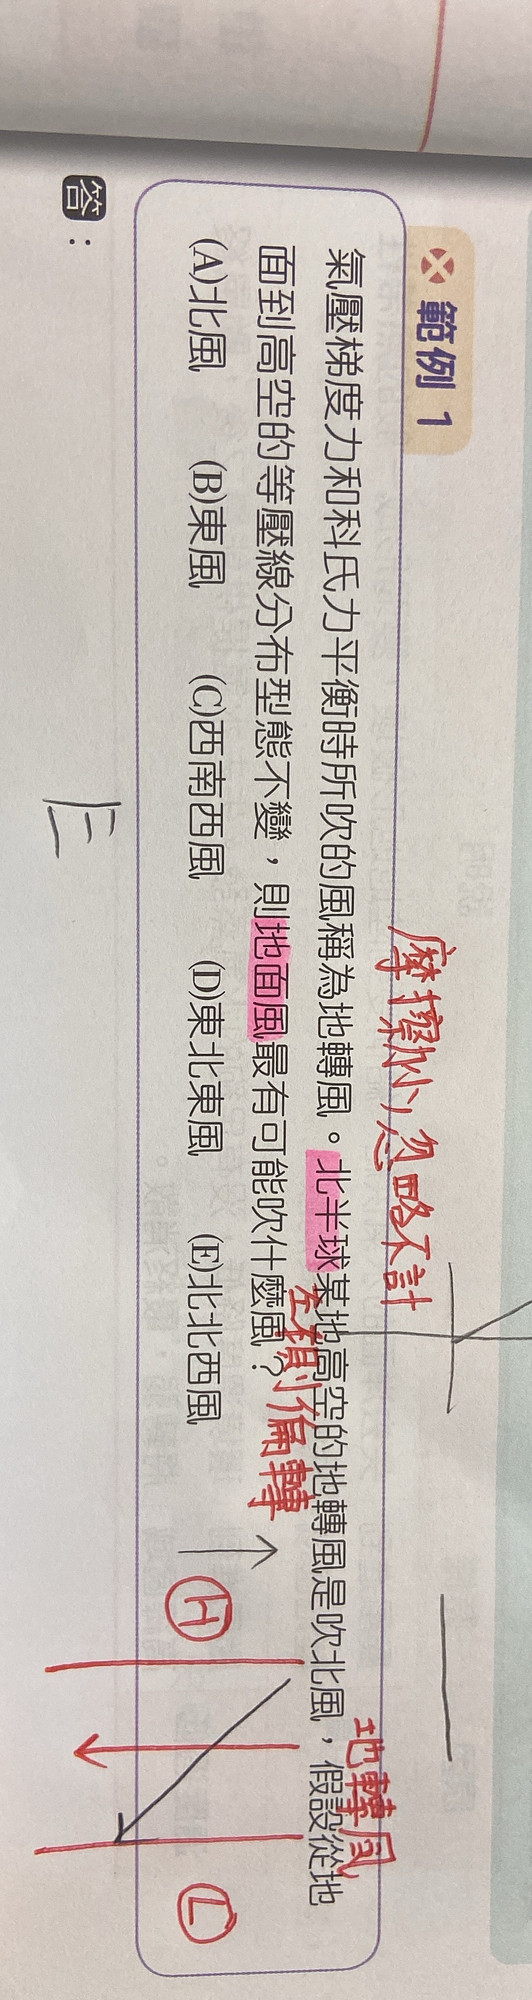 範例 1
摩擦小,忽略不計
氣壓梯度力和科氏力平衡時所吹的風稱為地轉風。北半球某地高空的地轉風是吹北風,假設從地
地轉風
面到高空的等壓線分布型態不變,則地面風最有可能吹什麼風?
左預偏轉
(A)北風 (B)東風 (C)西南西風 (D)東北東風 (E)北北西風
H
L
答:
E